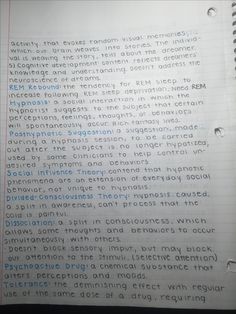 activity that evokes random visual memories,
which our brain weaves into stories. The individ-
ual is weaving the story, tells about the dreamer.
5) Cognitive development content reflects dreamers
knowledge and understanding, doesn't address the
neuroscience of dreams.
REM Rebound: the tendency for REM sleep to
increase following REM sleep deprivation. need REM
Hypnosis: a social interaction in which the
hypnotist suggests to the subject that certain
perceptions, feelings, thoughts, or behaviors
will spontaneously occur. Rich fantasy lives.
Posthypnotic Suggestion: a suggestion, made
during a hypnosis session, to be carried
out after the subject is no longer hypnotized,
used by some clinicians to help control un-
desired symptoms and behaviors.
Social Influence Theory: contend that hypnotic
phenomena are an extension of everyday social
behavior, not unique to hypnosis.
Divided-Consciousness Theory: hypnosis caused,
a split in awareness, can't process that the
cold is painful.
Dissociation: a split in consciousness, which
allows some thoughts and behaviors to occur
simultaneously with others.
· Doesn't block sensory input, but may block
our attention to the stimuli. (selective attention)
Psychoactive Drug: a chemical substance that
alters perceptions and moods.
Tolerance: the deminishing effect with regular
use of the same dose of a drug, requiring